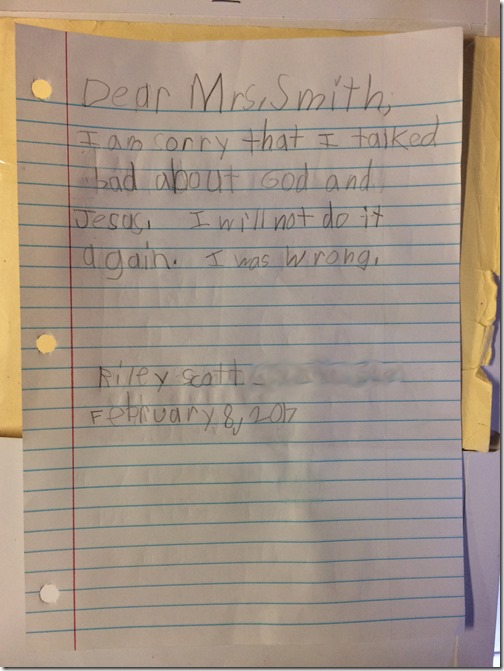 Dear Mrs. Smith,
I am sorry that I talked
bad about God and
Jesus. I will not do it
again. I was wrong.
Riley Scott
February 8, 2017